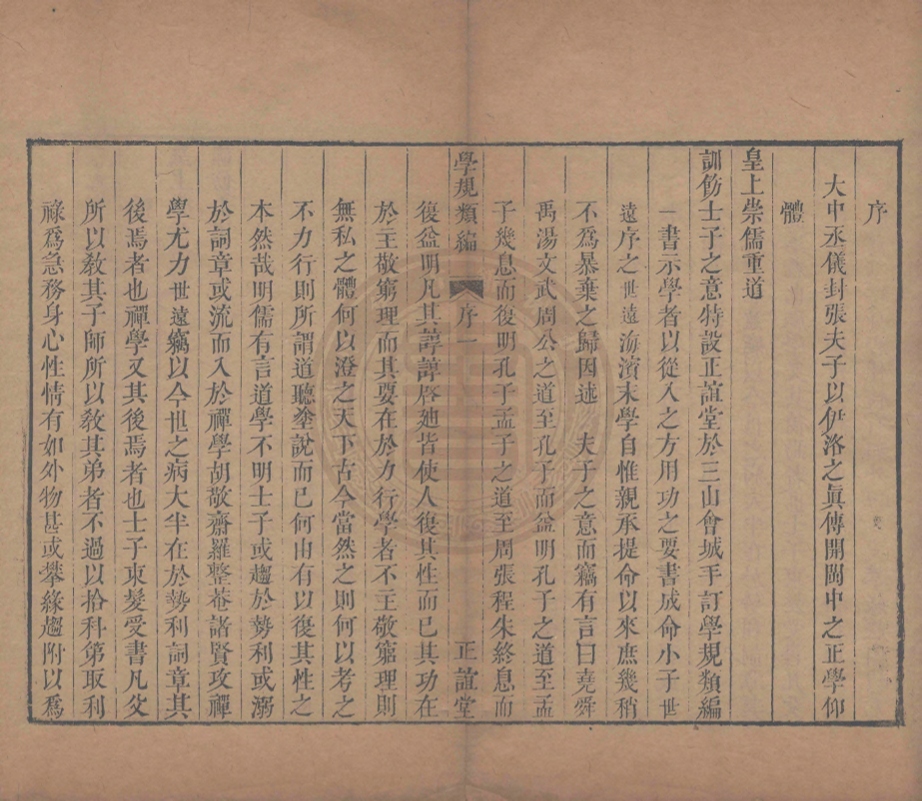 序
大中丞儀封張夫子以伊洛之眞傳開閩中之正學仰
體
皇上崇儒重道
訓飭士子之意特設正誼堂於三山會城手訂學規類編
一書示學者以從入之方用功之要書成命小子世
遠序之世遠海濱末學自惟親承提命以來庶幾稍
不爲暴棄之歸因述 夫子之意而竊有言曰堯舜
禹湯文武周公之道至孔子而益明孔子之道至孟
子幾息而復明孔子孟子之道至周張程朱終息而
學規類編 序一 正誼堂
復益明凡其諄諄啓廸皆使人復其性而已其功在
於主敬窮理而其要在於力行學者不主敬窮理則
無私之體何以澄之天下古今當然之則何以考之
不力行則所謂道聽塗說而已何由有以復其性之
本然哉明儒有言道學不明士子或趨於勢利或溺
於詞章或流而入於禪學胡敬齋羅整菴諸賢攻禪
學尤力世遠竊以今世之病大半在於勢利詞章其
後焉者也禪學又其後焉者也士子束髮受書凡父
所以敎其子師所以敎其弟者不過以拾科第取利
祿爲急務身心性情有如外物甚或攀緣趨附以爲